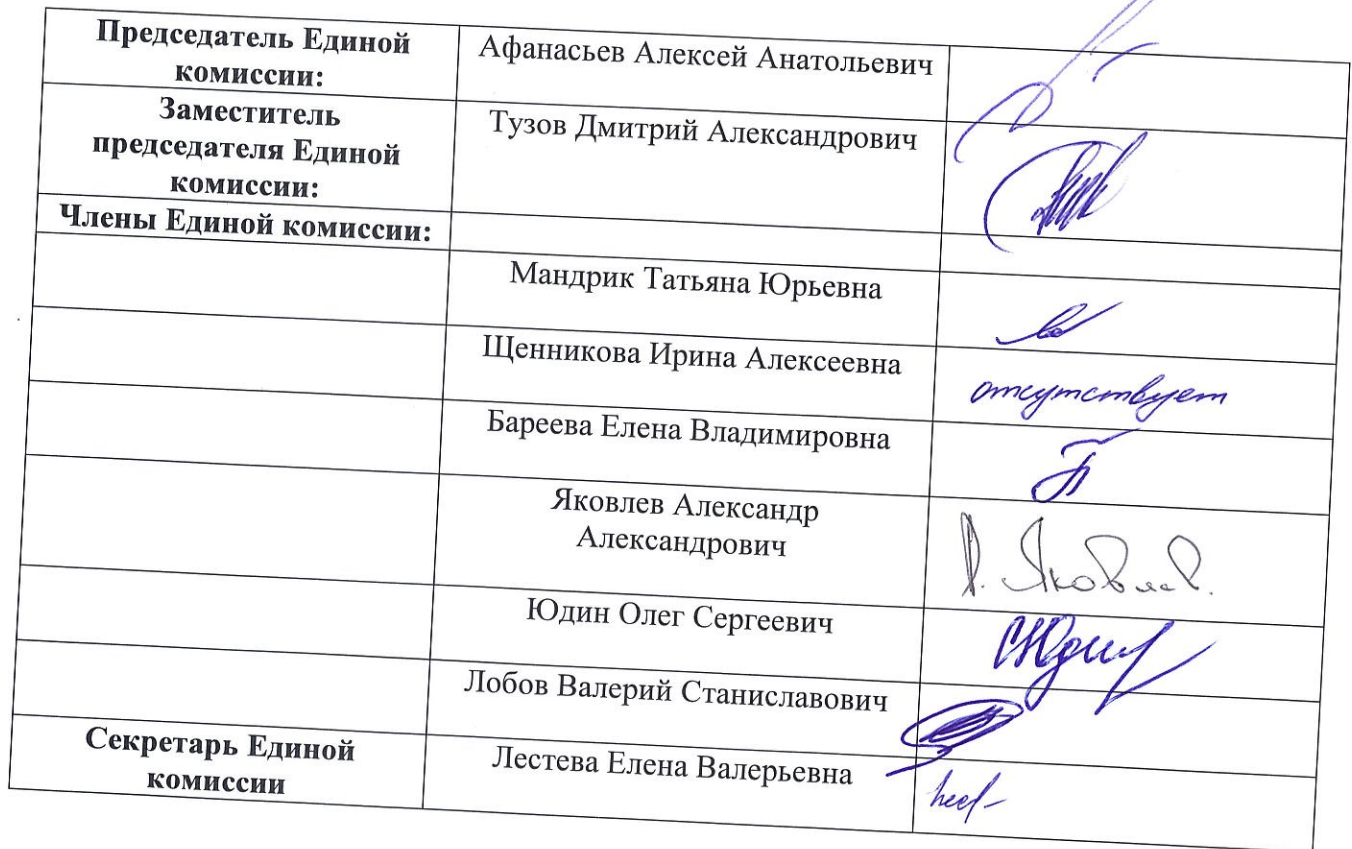 Председатель Единой
комиссии:
Афанасьев Алексей Анатольевич
Заместитель
председателя Единой
комиссии:
Тузов Дмитрий Александрович
Члены Единой комиссии:
Мандрик Татьяна Юрьевна
Щенникова Ирина Алексеевна
отсутствует
Бареева Елена Владимировна
Яковлев Александр
Александрович
Я. Яковлев.
Юдин Олег Сергеевич
Лобов Валерий Станиславович
Секретарь Единой
комиссии
Лестева Елена Валерьевна